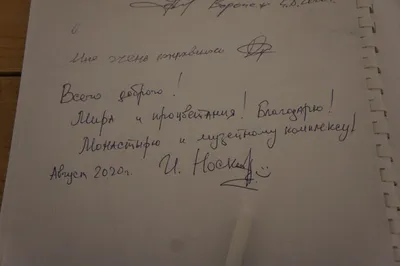 6
Мне очень понравилось
Всего доброго!
Мира и процветания! Благодарю!
Монастырю и музейному комплексу!
Август 2020г. И. Носков